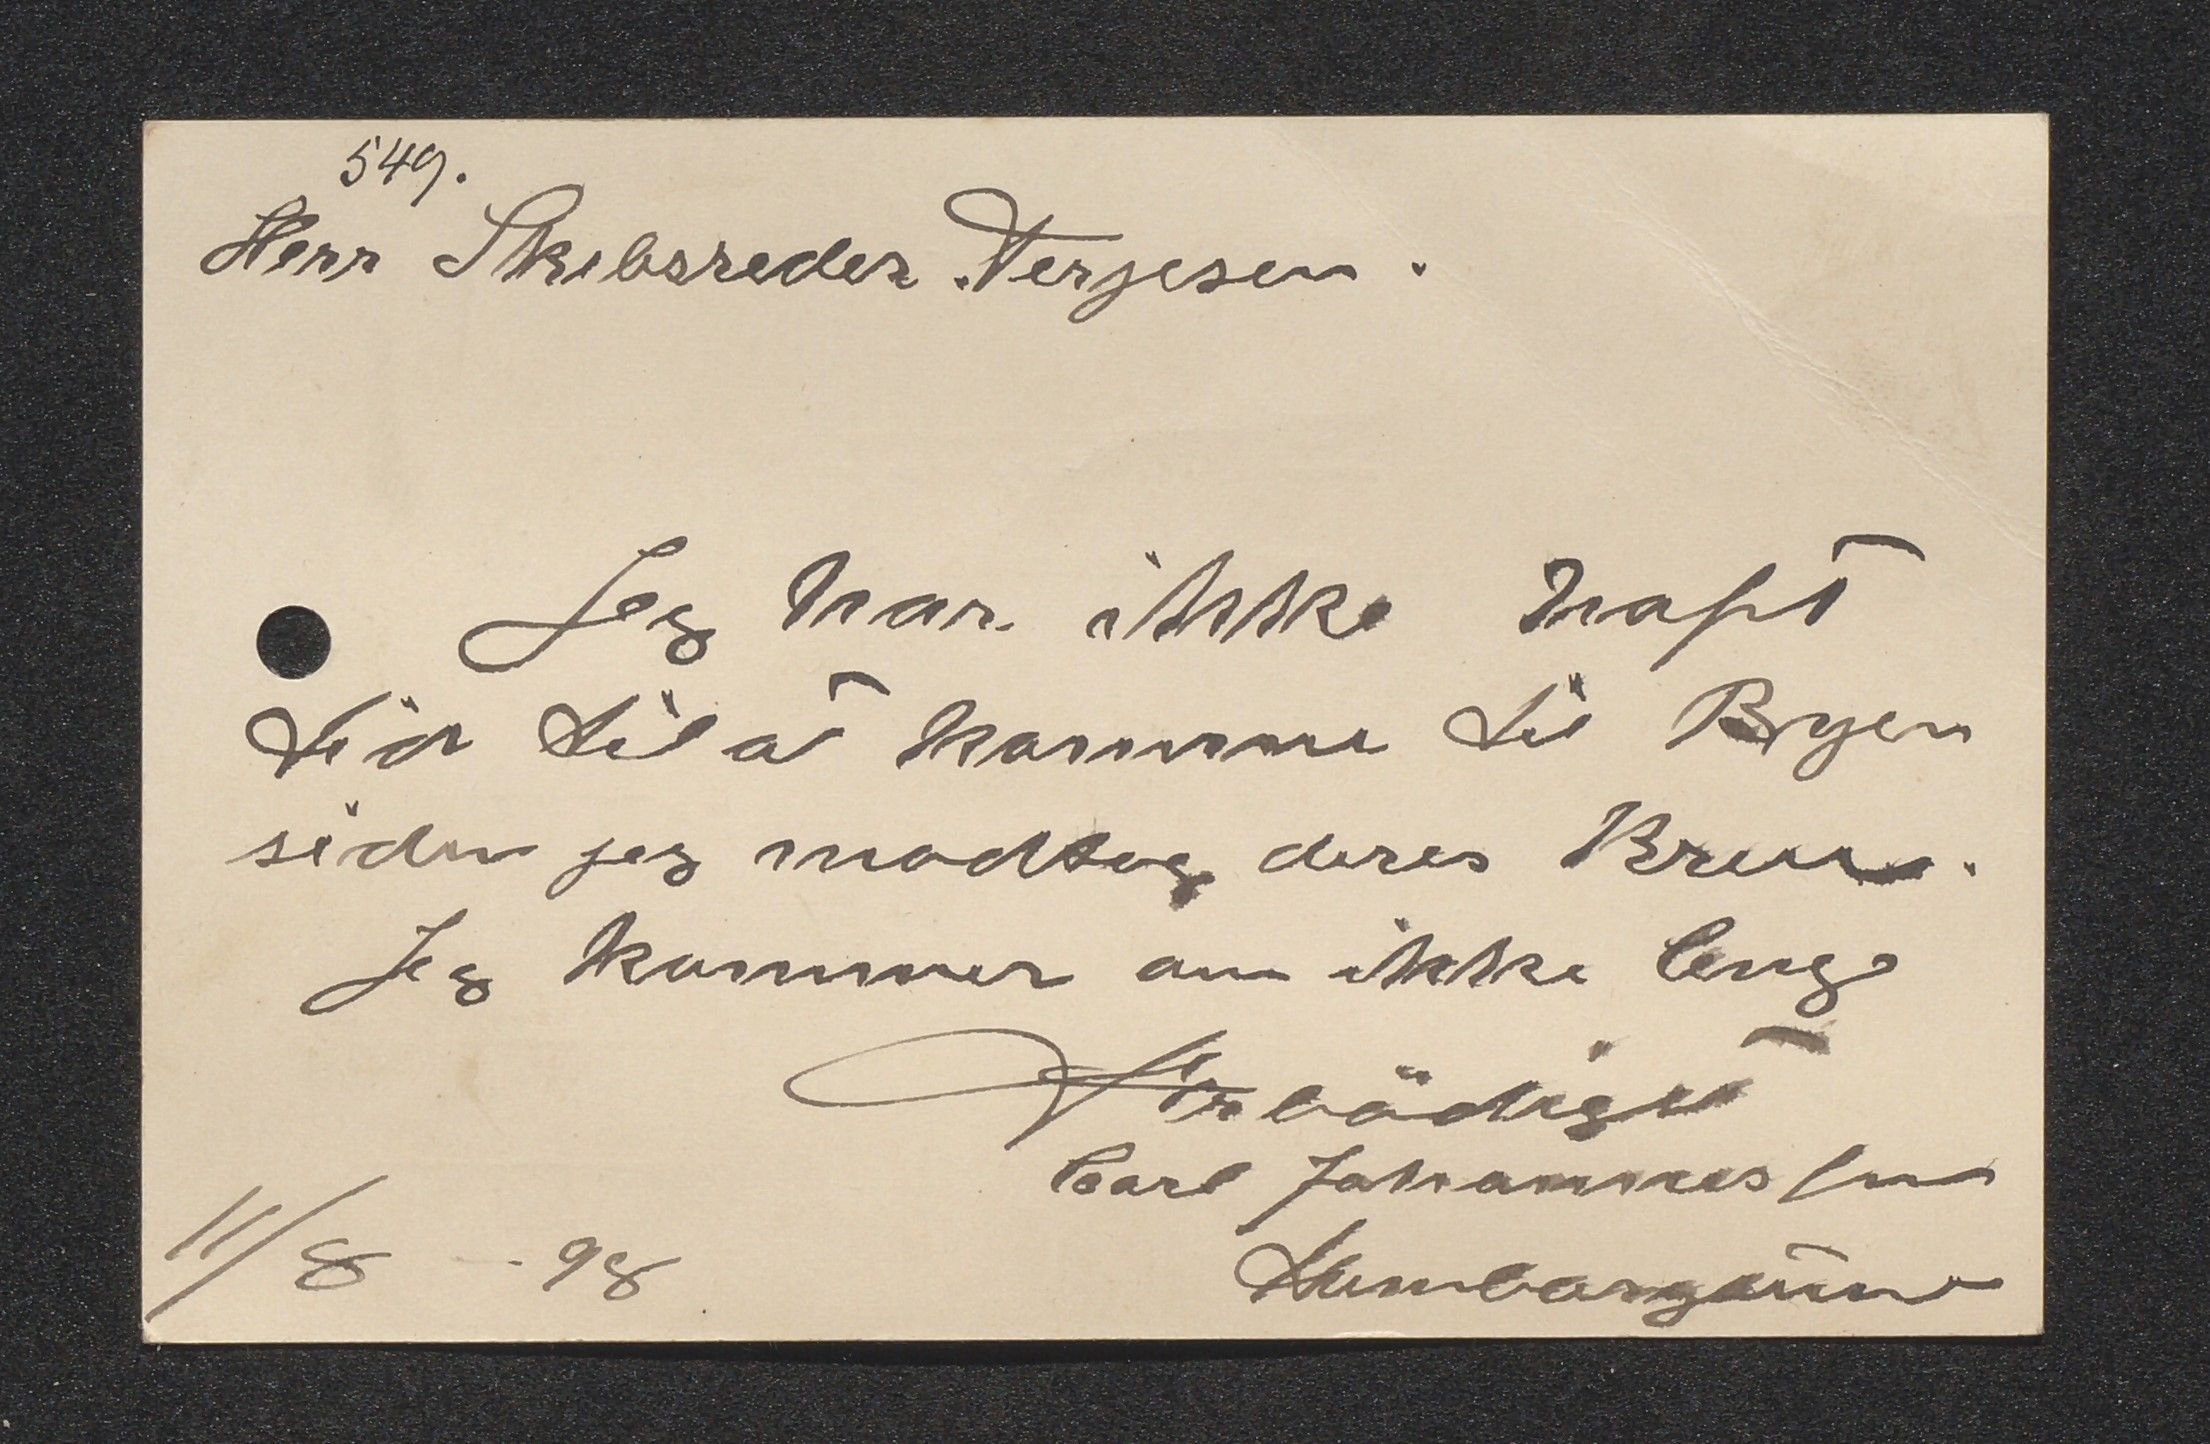 549.
Herr Skibsreder Terjesen.
Jeg har ikke haft
Tid til at komme til Byen
siden jeg modtog deres Brev.
Jeg kommer om ikke lenge
Ærbödigst
Carl Johannessen
11/8 - 98